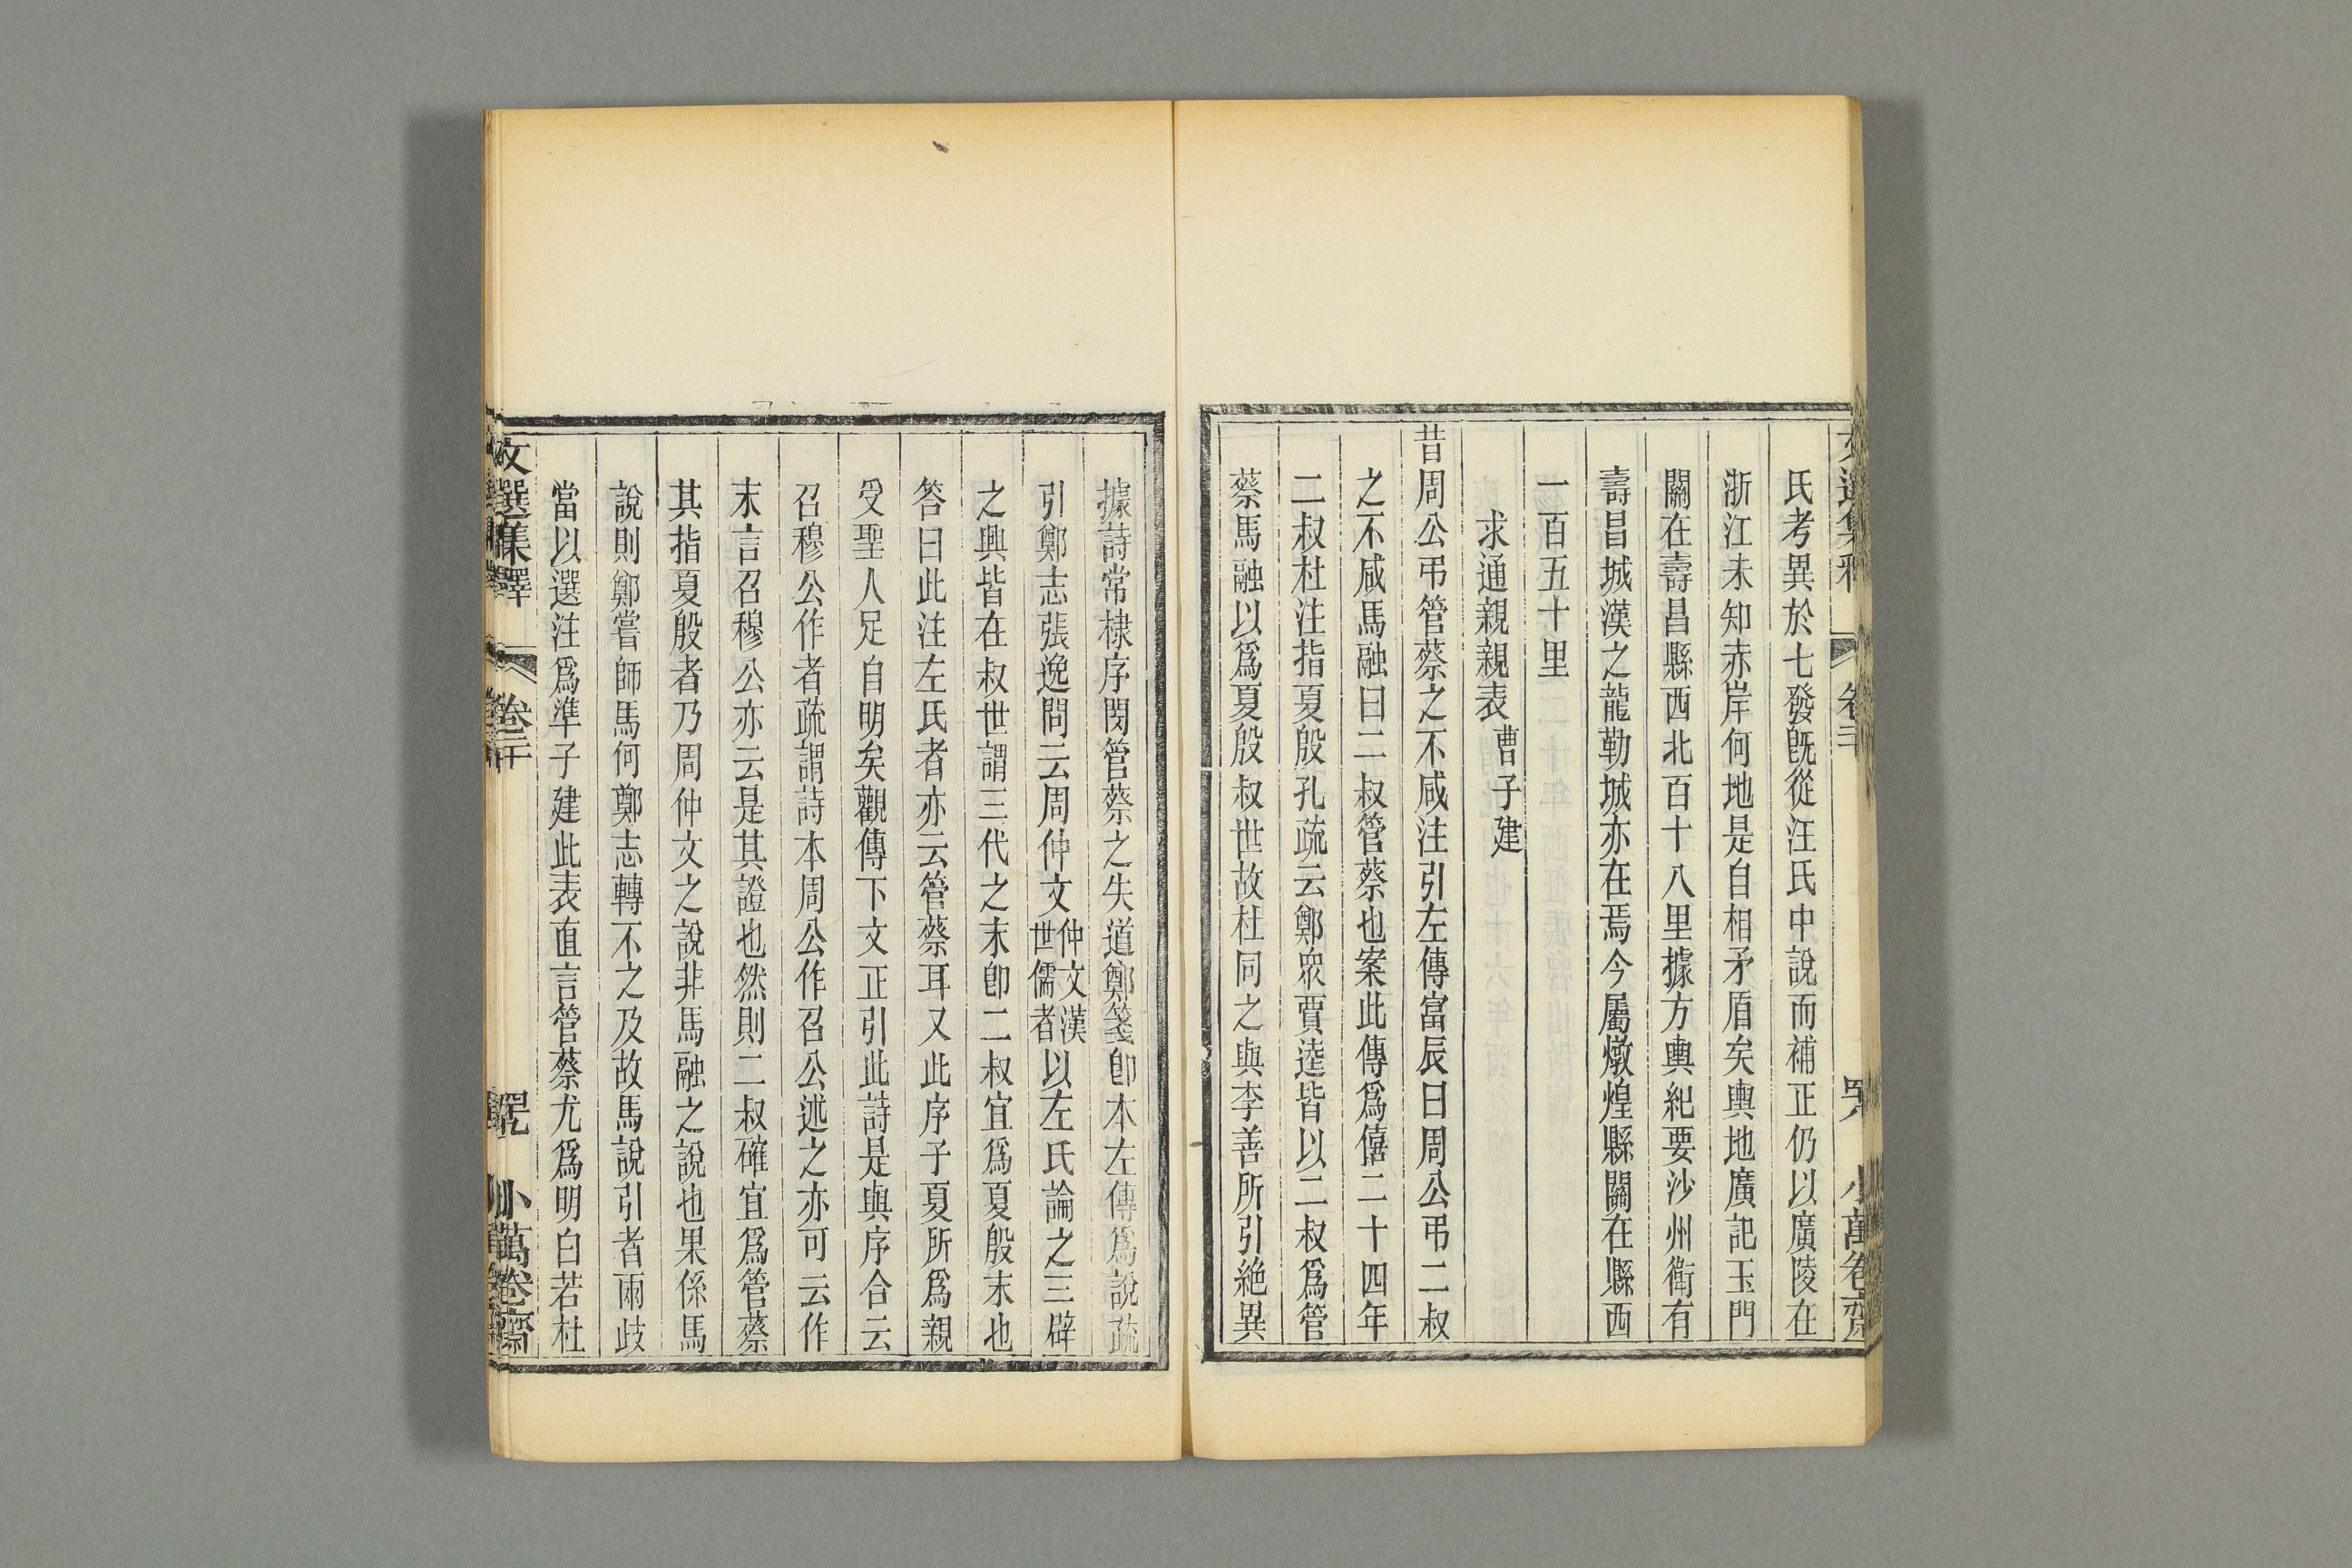 氏考異於七發旣從汪氏中說而補正仍以廣陵在
浙江未知赤岸何地是自相矛盾矣輿地廣記玉門
關在壽昌縣西北百十八里據方輿紀要沙州衛有
壽昌城漢之龍勒城亦在焉今屬燉煌縣關在縣西
一百五十里
求通親親表 曹子建
昔周公弔管蔡之不咸注引左傳富辰曰周公弔二叔
之不咸馬融曰二叔管蔡也案此傳爲僖二十四年
二叔杜注指夏殷孔疏云鄭衆賈逵皆以二叔爲管
蔡馬融以爲夏殷叔世故杜同之與李善所引絶異
據詩常棣序閔管蔡之失道鄭箋卽本左傳爲說疏
引鄭志張逸問云周仲文仲文漢世儒者以左氏論之三辟
之興皆在叔世謂三代之末卽二叔宜爲夏殷末也
答曰此注左氏者亦云管蔡耳又此序子夏所爲親
受聖人足自明矣觀傳下文正引此詩是與序合云
召穆公作者疏謂詩本周公作召公述之亦可云作
末言召穆公亦云是其證也然則二叔確宜爲管蔡
其指夏殷者乃周仲文之說非馬融之說也果係馬
說則鄭嘗師馬何鄭志轉不之及故馬說引者兩歧
當以選注爲準子建此表直言管蔡尤爲明白若杜
文選集釋 卷二十 小萬卷齋